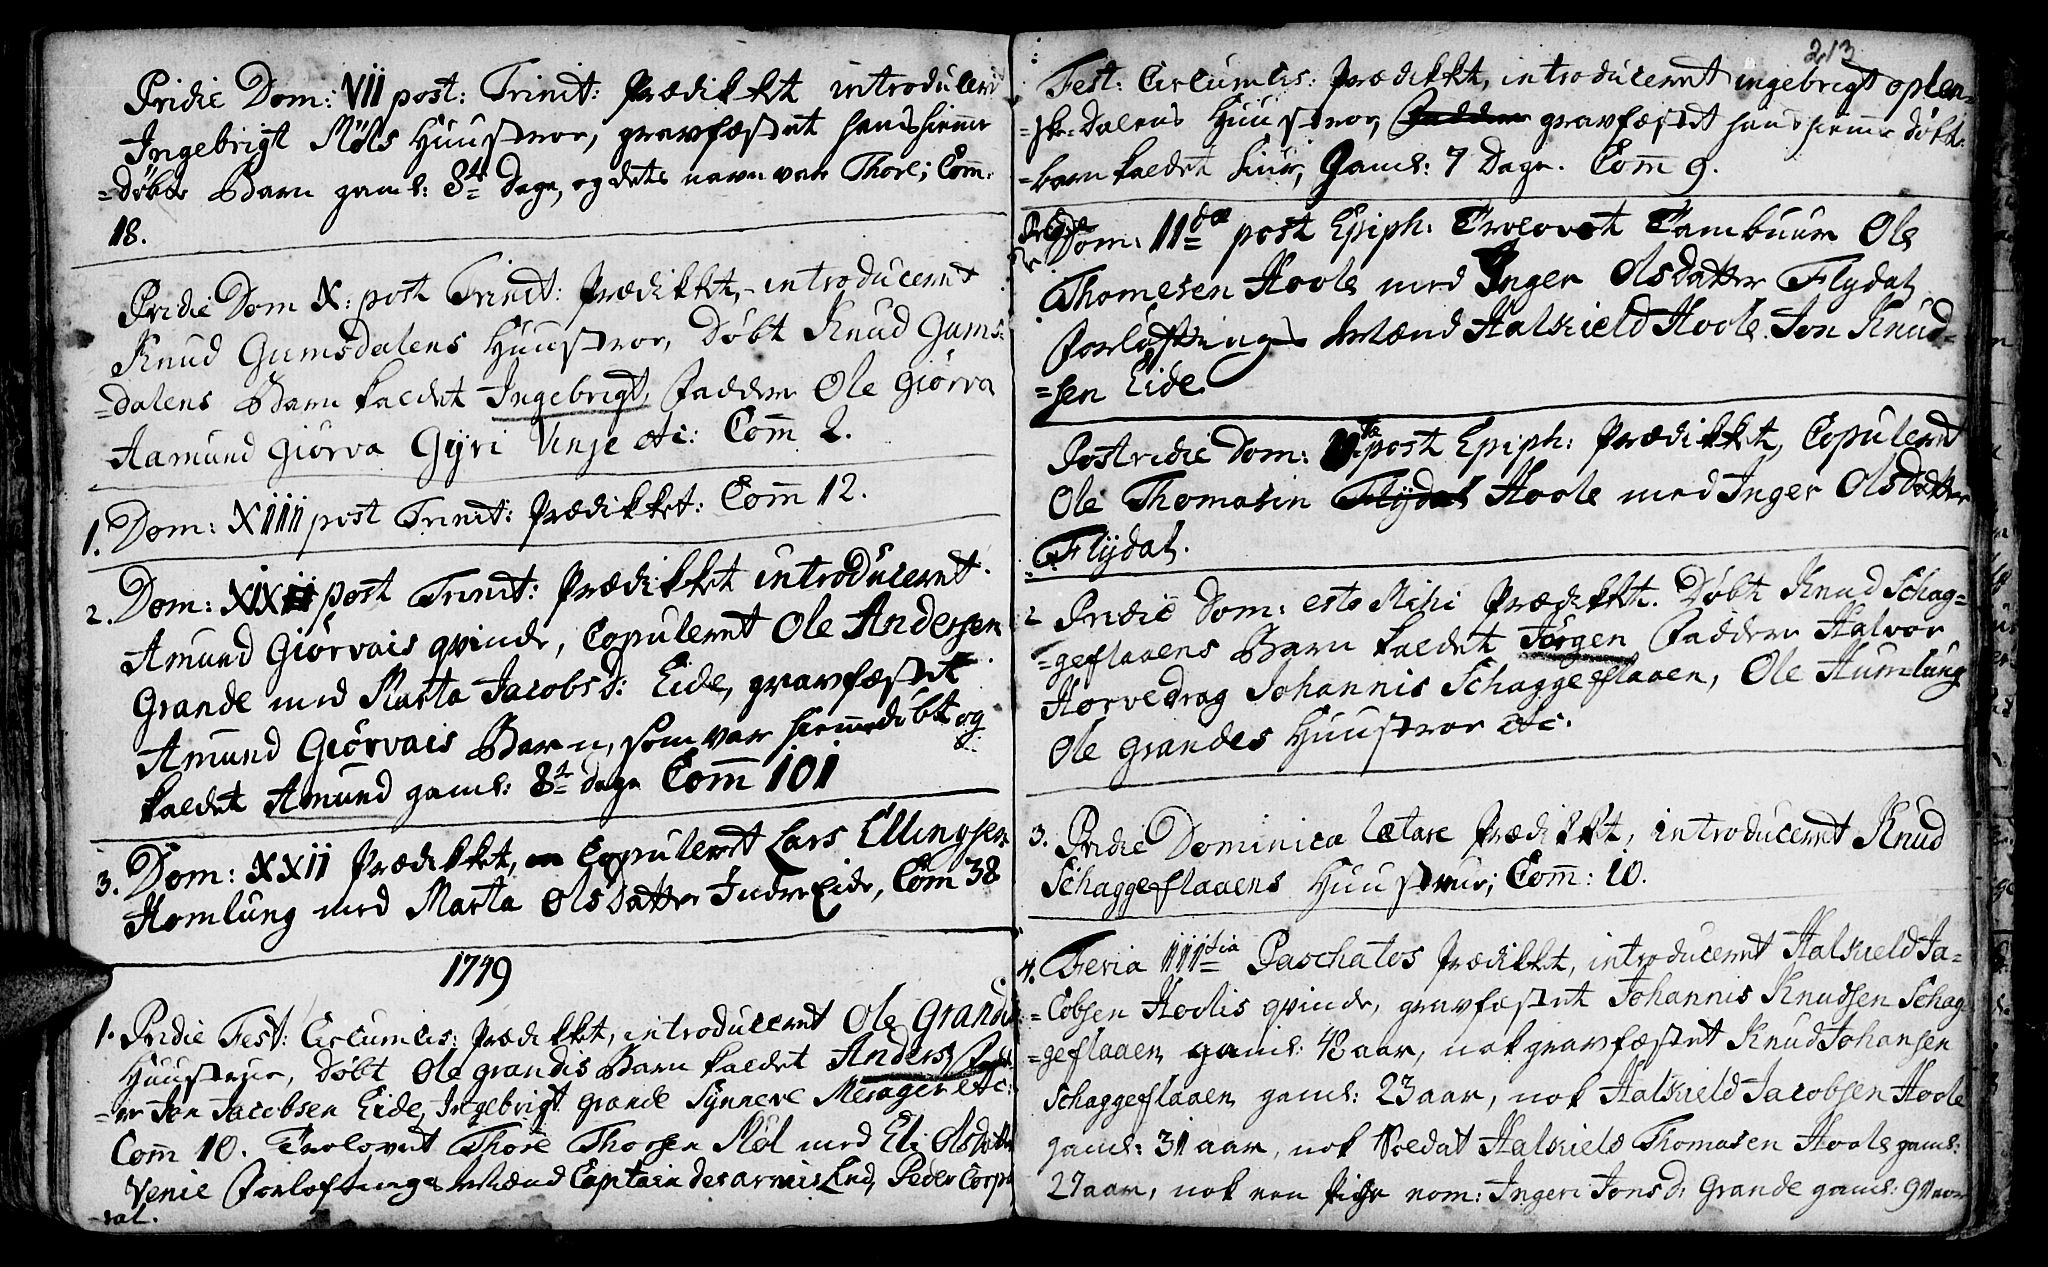 Pridie Dom: VII post: Trinit: Prædikket introducert
Ingebrigt Möls Huustroe, gravfæstet hans hiemme
=döbte Barn gaml: 8te dage, og dets navn var Thore; Com̄:
18.
Pridie Dom X: post Trinit: Prædikket, introduceret
Knud Gumsdalens Huustroe, Döbt Knud Gums-
=dalens Barn kaldet Ingebrigt, Faddere Ole Giörva
Aamund Giörva Gyri Vinje etc: Com̄ 2.
1. Dom: XIIII post Trinit: Prædikket: Com̄ 12.
2. Dom: XIX post Trinit: Prædikket introduceret
Amund Giörvais qvinde, Copuleret Ole Andersen
Grande med Marta Jacobsd: Eide, gravfæstet
Amund Giörvais Barn, som var hiemmedöbt og
kaldet Amund gaml: 8te dage Com̄ 101
3. Dom: XXII Prædikket, Copuleret Lars Ellingsen
Homlung med Marta Olsdatter Indre Eide, Com̄ 38
1749
1. Pridie Fest: Circumcis: Prædikket, introduceret Ole Grandis
Huustrue, Döbt Ole grandis Barn kaldet Anders, Fadd-
=er Jon Jacobsen Eide, Ingebrigt grande Synneve Merager etc:
Com̄ 10. Trolovet Thore Thorsen Möl med Eli Olsdatter
Venie Forloftings Mænd Captain des armis Lud, Peder Corpo
-ral.
213
Fest: Circumcis: Prædikket, introduceret ingebrigt oplen=
=ske=dalens Huustroe, Faddere gravfæstet hans hiemme döbte
=barn kaldet Siur, Gaml: 7 Dage. Com̄ 9.
Pridie
Dom: 11da post Epiph: Trolovet Tambuur Ole
Thomesen Hoole med Inger Olsdatter Flydal
Forlöftnings Mænd Halkield Hoole. Jon Knud=
=sen Eide
Postridie Dom: post Epiph: Prædikket, Copuleret
Ole Thomasin Flydal Hoole med Inger Olsdatter
Flÿdal.
2 Pridie Dom: esto Mihi Prædikket. Döbt Knud Schag=
=geflaaens Barn kaldet Jörgen Faddere Halvor
Horvedrag Johannis Schaggeflaaen, Ole Humlung
Ole grandes Huustroe etc:
3. Pridie Dominica lætare Prædikket, introduceret Knud
Schaggeflaaens Huustrue; Com̄: 10.
4. Feria IIItia Paschatos Prædikket, introduceret Halkield Ja=
=cobsen Hoolis qvinde, gravfæstet Johannis Knudsen Schag
=geflaaen gaml: 48 aar, nok gravfæstet Knud Johansen
Schaggeflaaen gaml: 23 aar, nok Halkield Jacobsen Hoole
gaml: 31 aar, nok Soldat Halkield Thomasen Hoole gaml:
27 aar, nok een Pige nom: Ingeri Jonsd: Grande gaml: 9 aar